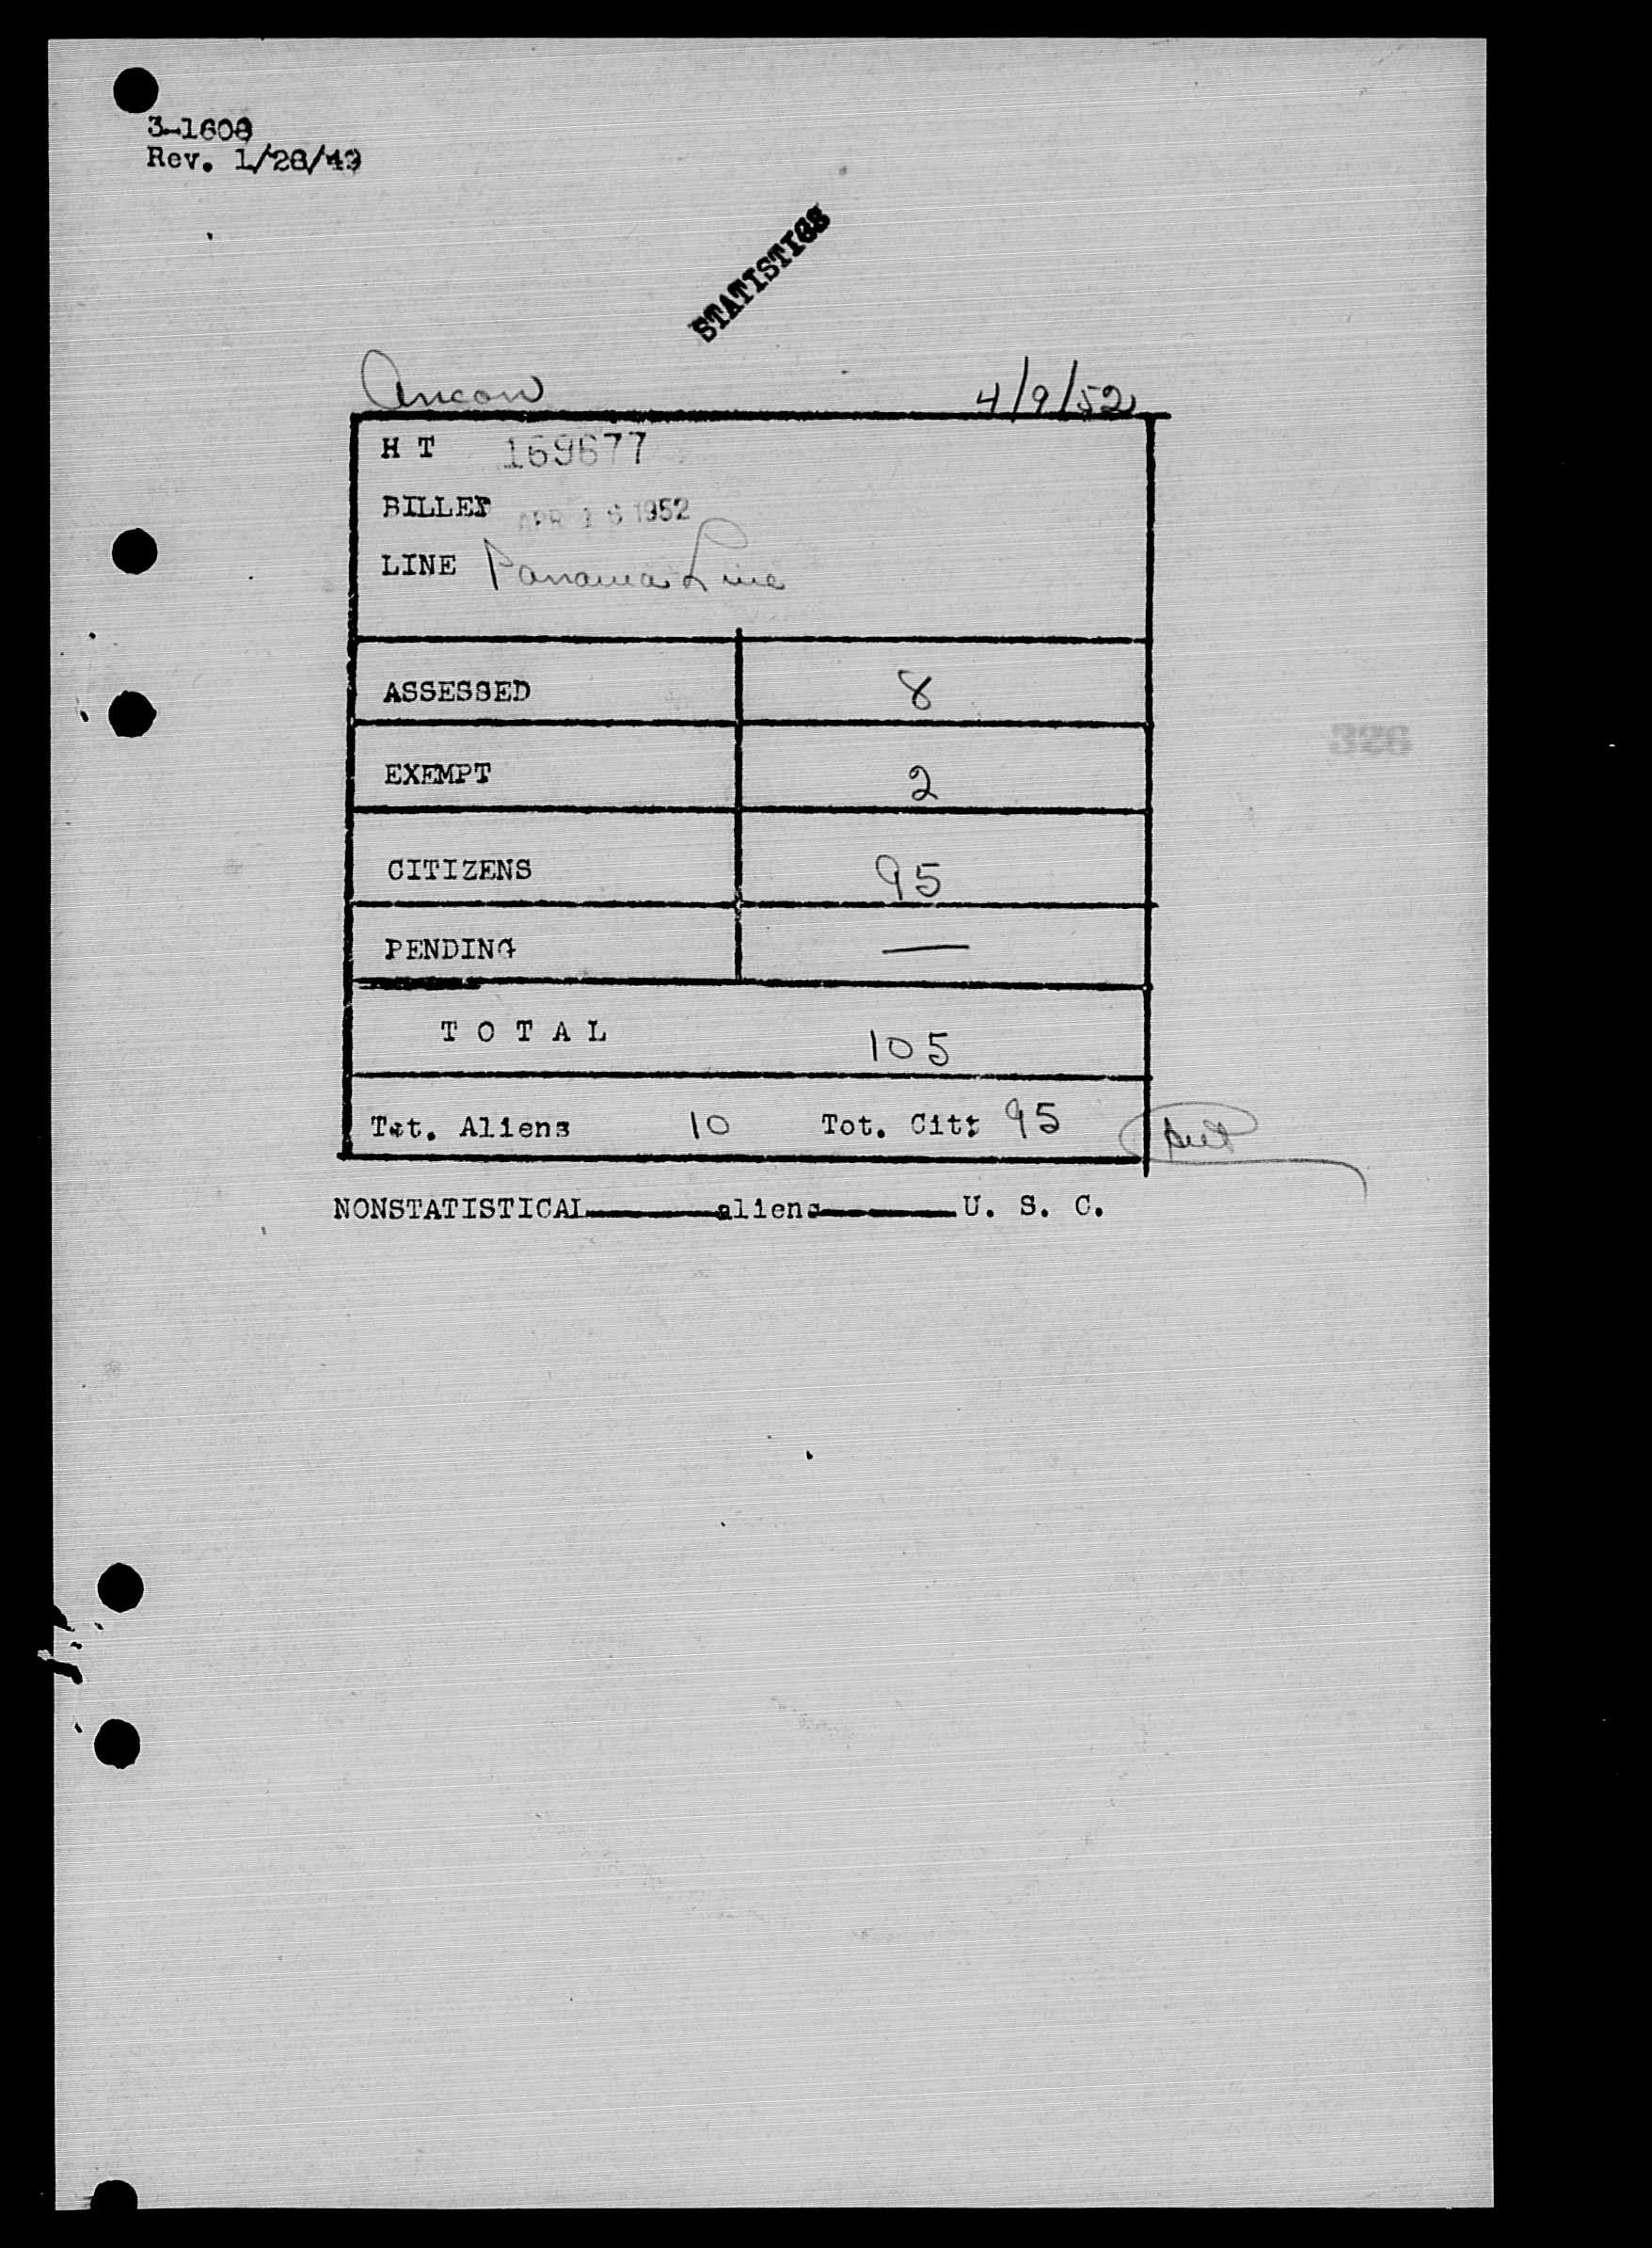 3-1608
Rev. 1/28/49
STATISTICS
Ancon 4/9/52
H T 169677
BILLET APR 16 1952
LINE Panama Line
ASSESSED 8
EXEMPT 2
CITIZENS 95
PENDING —
T O T A L 105
Tot. Aliens 10 Tot. Cit: 95
NONSTATISTICAL aliens U. S. C.